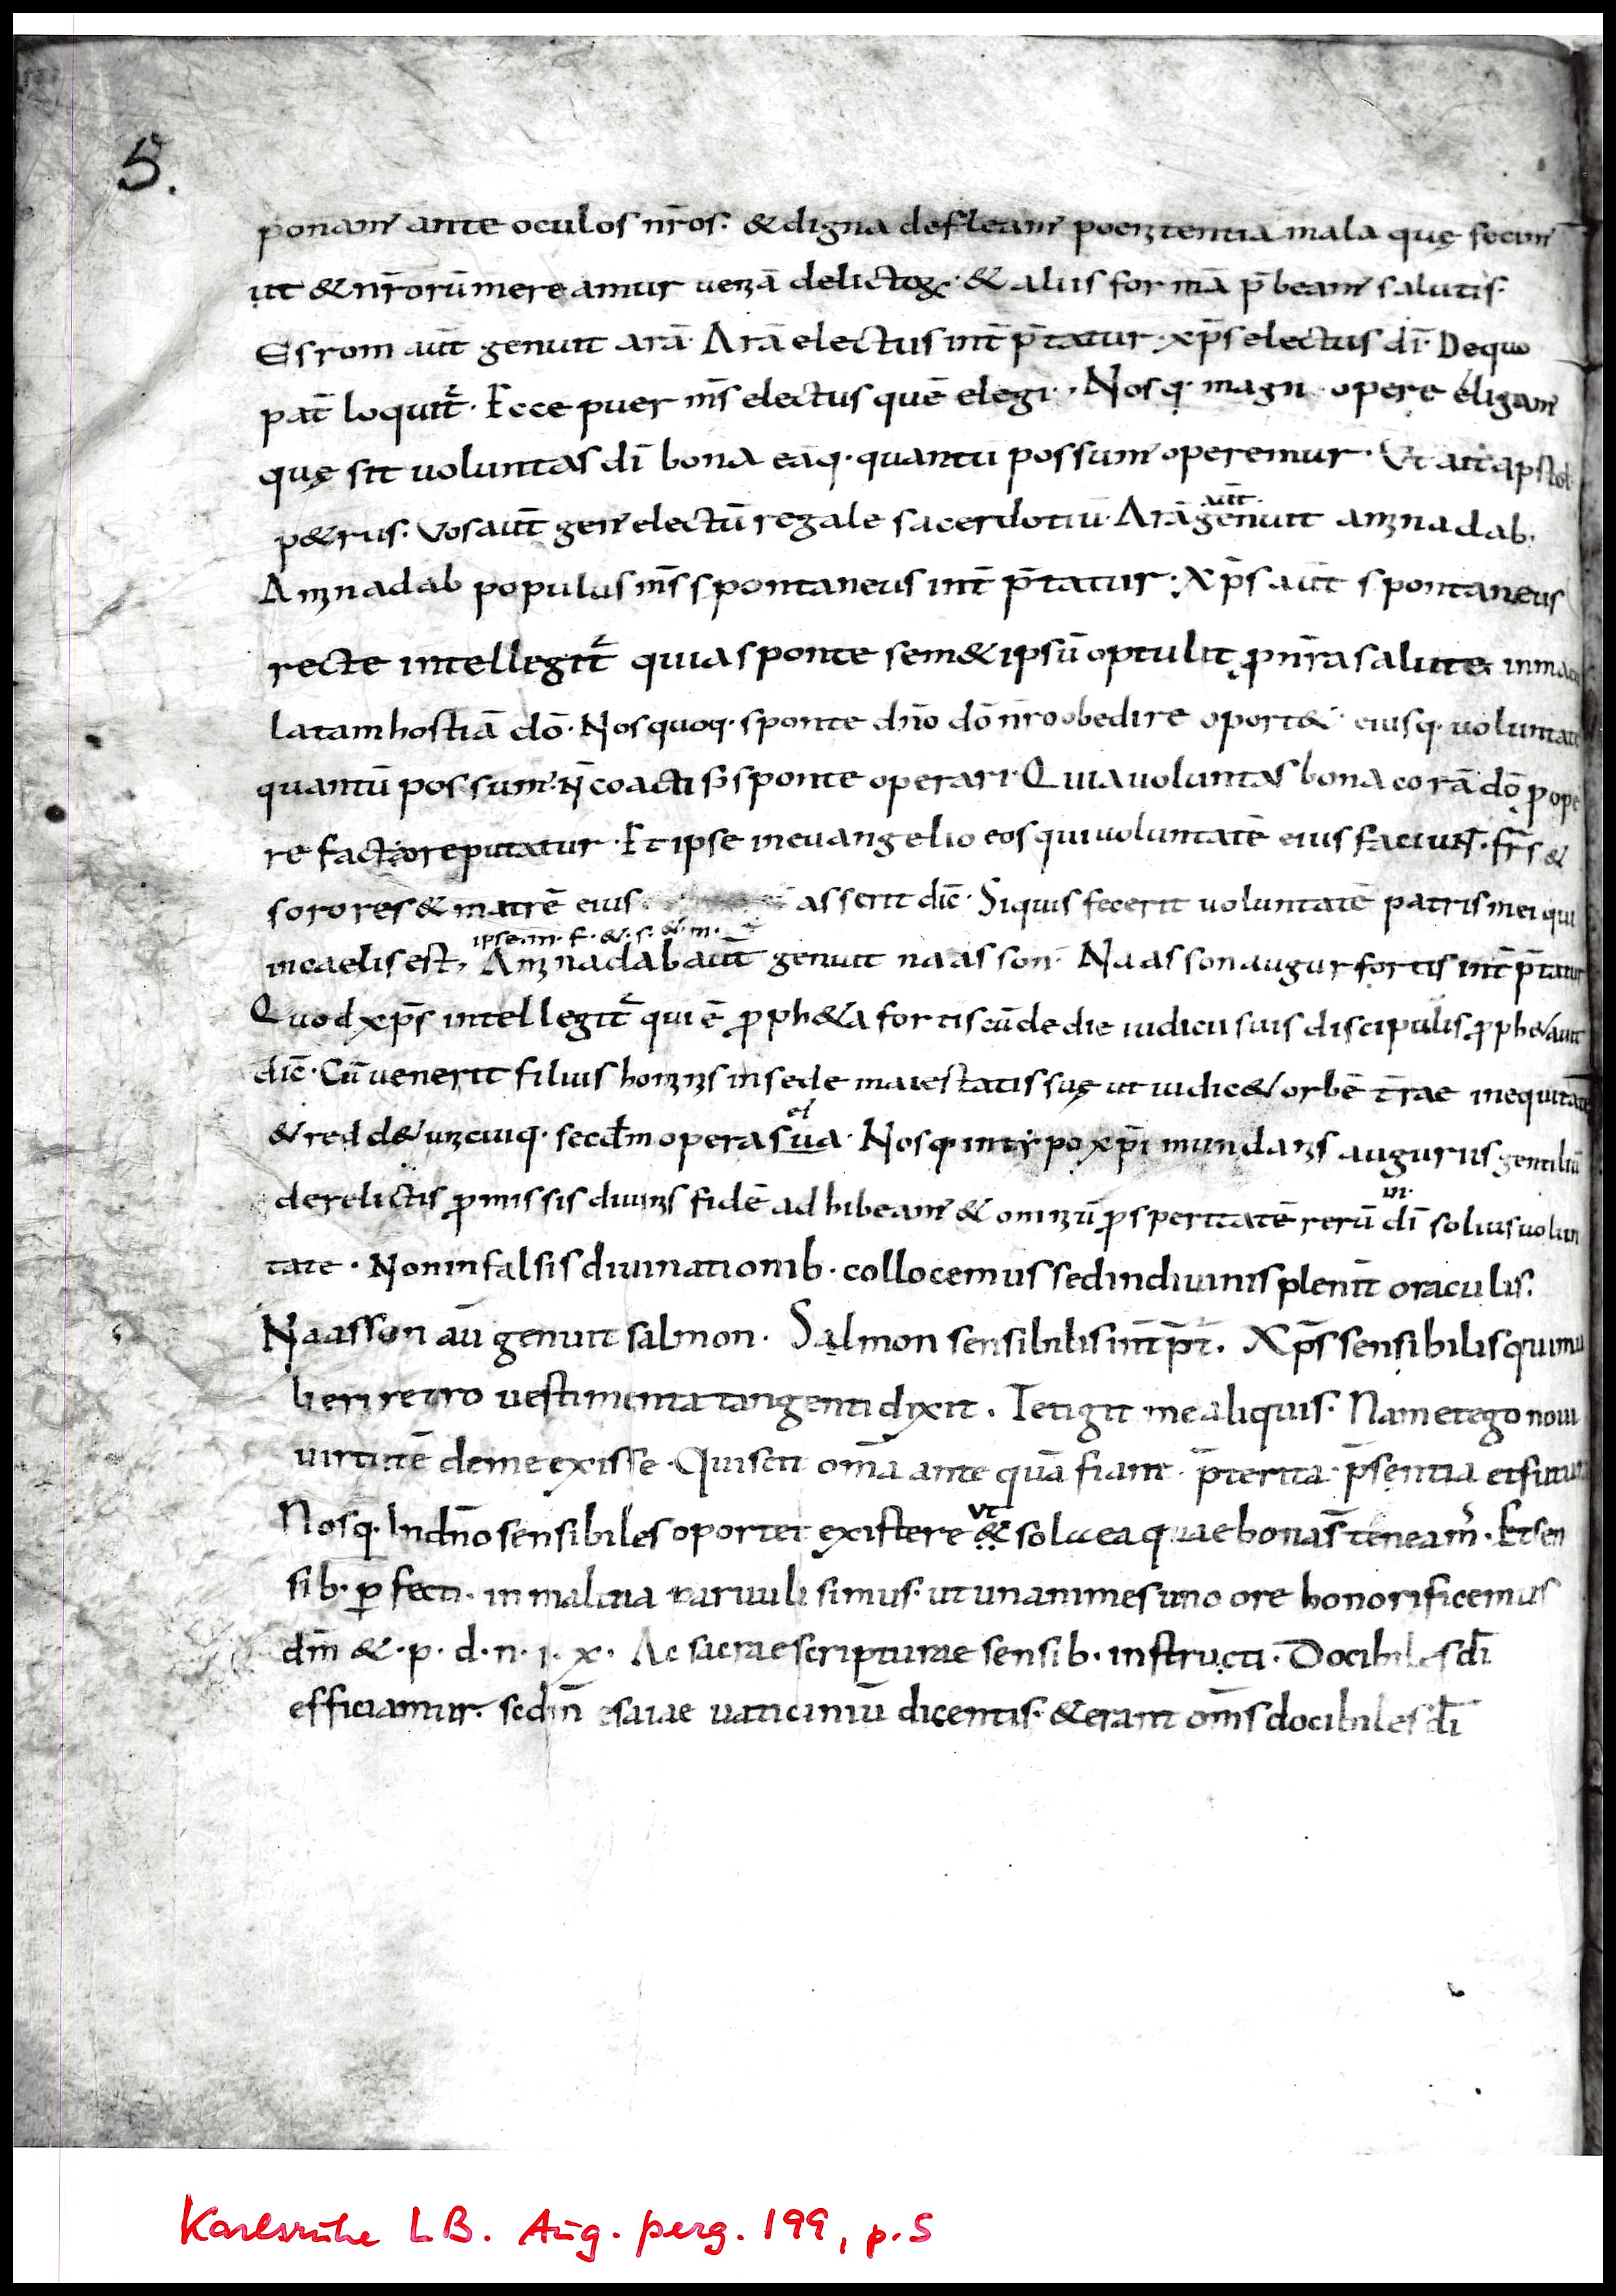 5.
ponam' ante oculos nr̄os· & digna defleam' poenitentia mala quę fecim'
ut & nr̄orū mereamur ueniā delictoꝝ· & aliis formā p̄beam' salutis·
Esrom aut̄ genuit arā· Arā electus int̄p̄tatur· xp̄s electus dī· De quo
pat̄ loquit̄· Ecce puer ms̄ electus quē elegi· Nosq· magn opere eligam'
quę sit uoluntas dī bona eāq· quantū possum' operemur· Vt ait apstol
p&rus· Vos aut̄ gen' electū regale sacerdotiū· Arā aut̄ genuit aminadab·
Aminadab populus ms̄ spontaneus int̄p̄tatur· Xp̄s aut̄ spontaneus
recte intellegit̄ quia sponte sem&ipsū optulit ꝓ nr̄a salute inmacu
latam hostiā dō· Nos quoq· sponte dn̄o dō nr̄o obedire oport&· eiusq· uoluntatē
quantū possum' n̄ coacti s̄ sponte operari· Quia uoluntas bona corā dō ꝓ ope
re facto reputatur· Et ipse in euangelio eos qui uoluntatē eius faciunt· fr̄s &
sorores & matrē eius asserit dic̄· Siquis fecerit uoluntatē patris mei qui
ipse· m· f· &· s· &· m·
in caelis est, Aminadab aut̄ genuit naasson· Naasson augur fortis int̄p̄tatur
Quod xp̄s intellegit̄ qui ē ꝓph&a fortis cū de die iudicii suis discipulis ꝓph&auit
dic̄· Cū uenerit filius hominis in sede maiestatis suę ut iudic& orbē t̄rae in equitate
& redd& unicuiq· secdm̄ opera sua· Nosq· in tẏpo xp̄i mundanis auguriis gentiliū
derelictis ꝓmissis diuinis fidē adhibeam' & omniū ꝓsperitatē rerū in· dī solius uolun
tate· Non in falsis diuinationib· collocemus sed in diuinis plenit̄ oraculis·
Naasson aū genuit salmon· Salmon sensibilis int̄p̄t̄· Xp̄s sensibilis qui mu
lieri retro uestimenta tangenti dixit· Tetigit me aliquis· Nam et ego noui
uirtutē de me exisse· Qui scit om̄a ante quā fiant· p̄terita· p̄sentia et futura
Nosq· In dn̄o sensibiles oportet existere vt & solu ea quae bona s̄ teneam'· Et sen
sib· ꝑfecti· in malitia paruuli simus· ut unanimes uno ore honorificemus
dm̄ &· p· d· n· i· x· Ac sacrae scripturae sensib· instructi· Docibiles dī
efficiamur· sedm̄ esaiae uaticiniū dicentis· & erant om̄s docibiles dī
Karlsruhe LB. Aug. perg. 199, p. 5